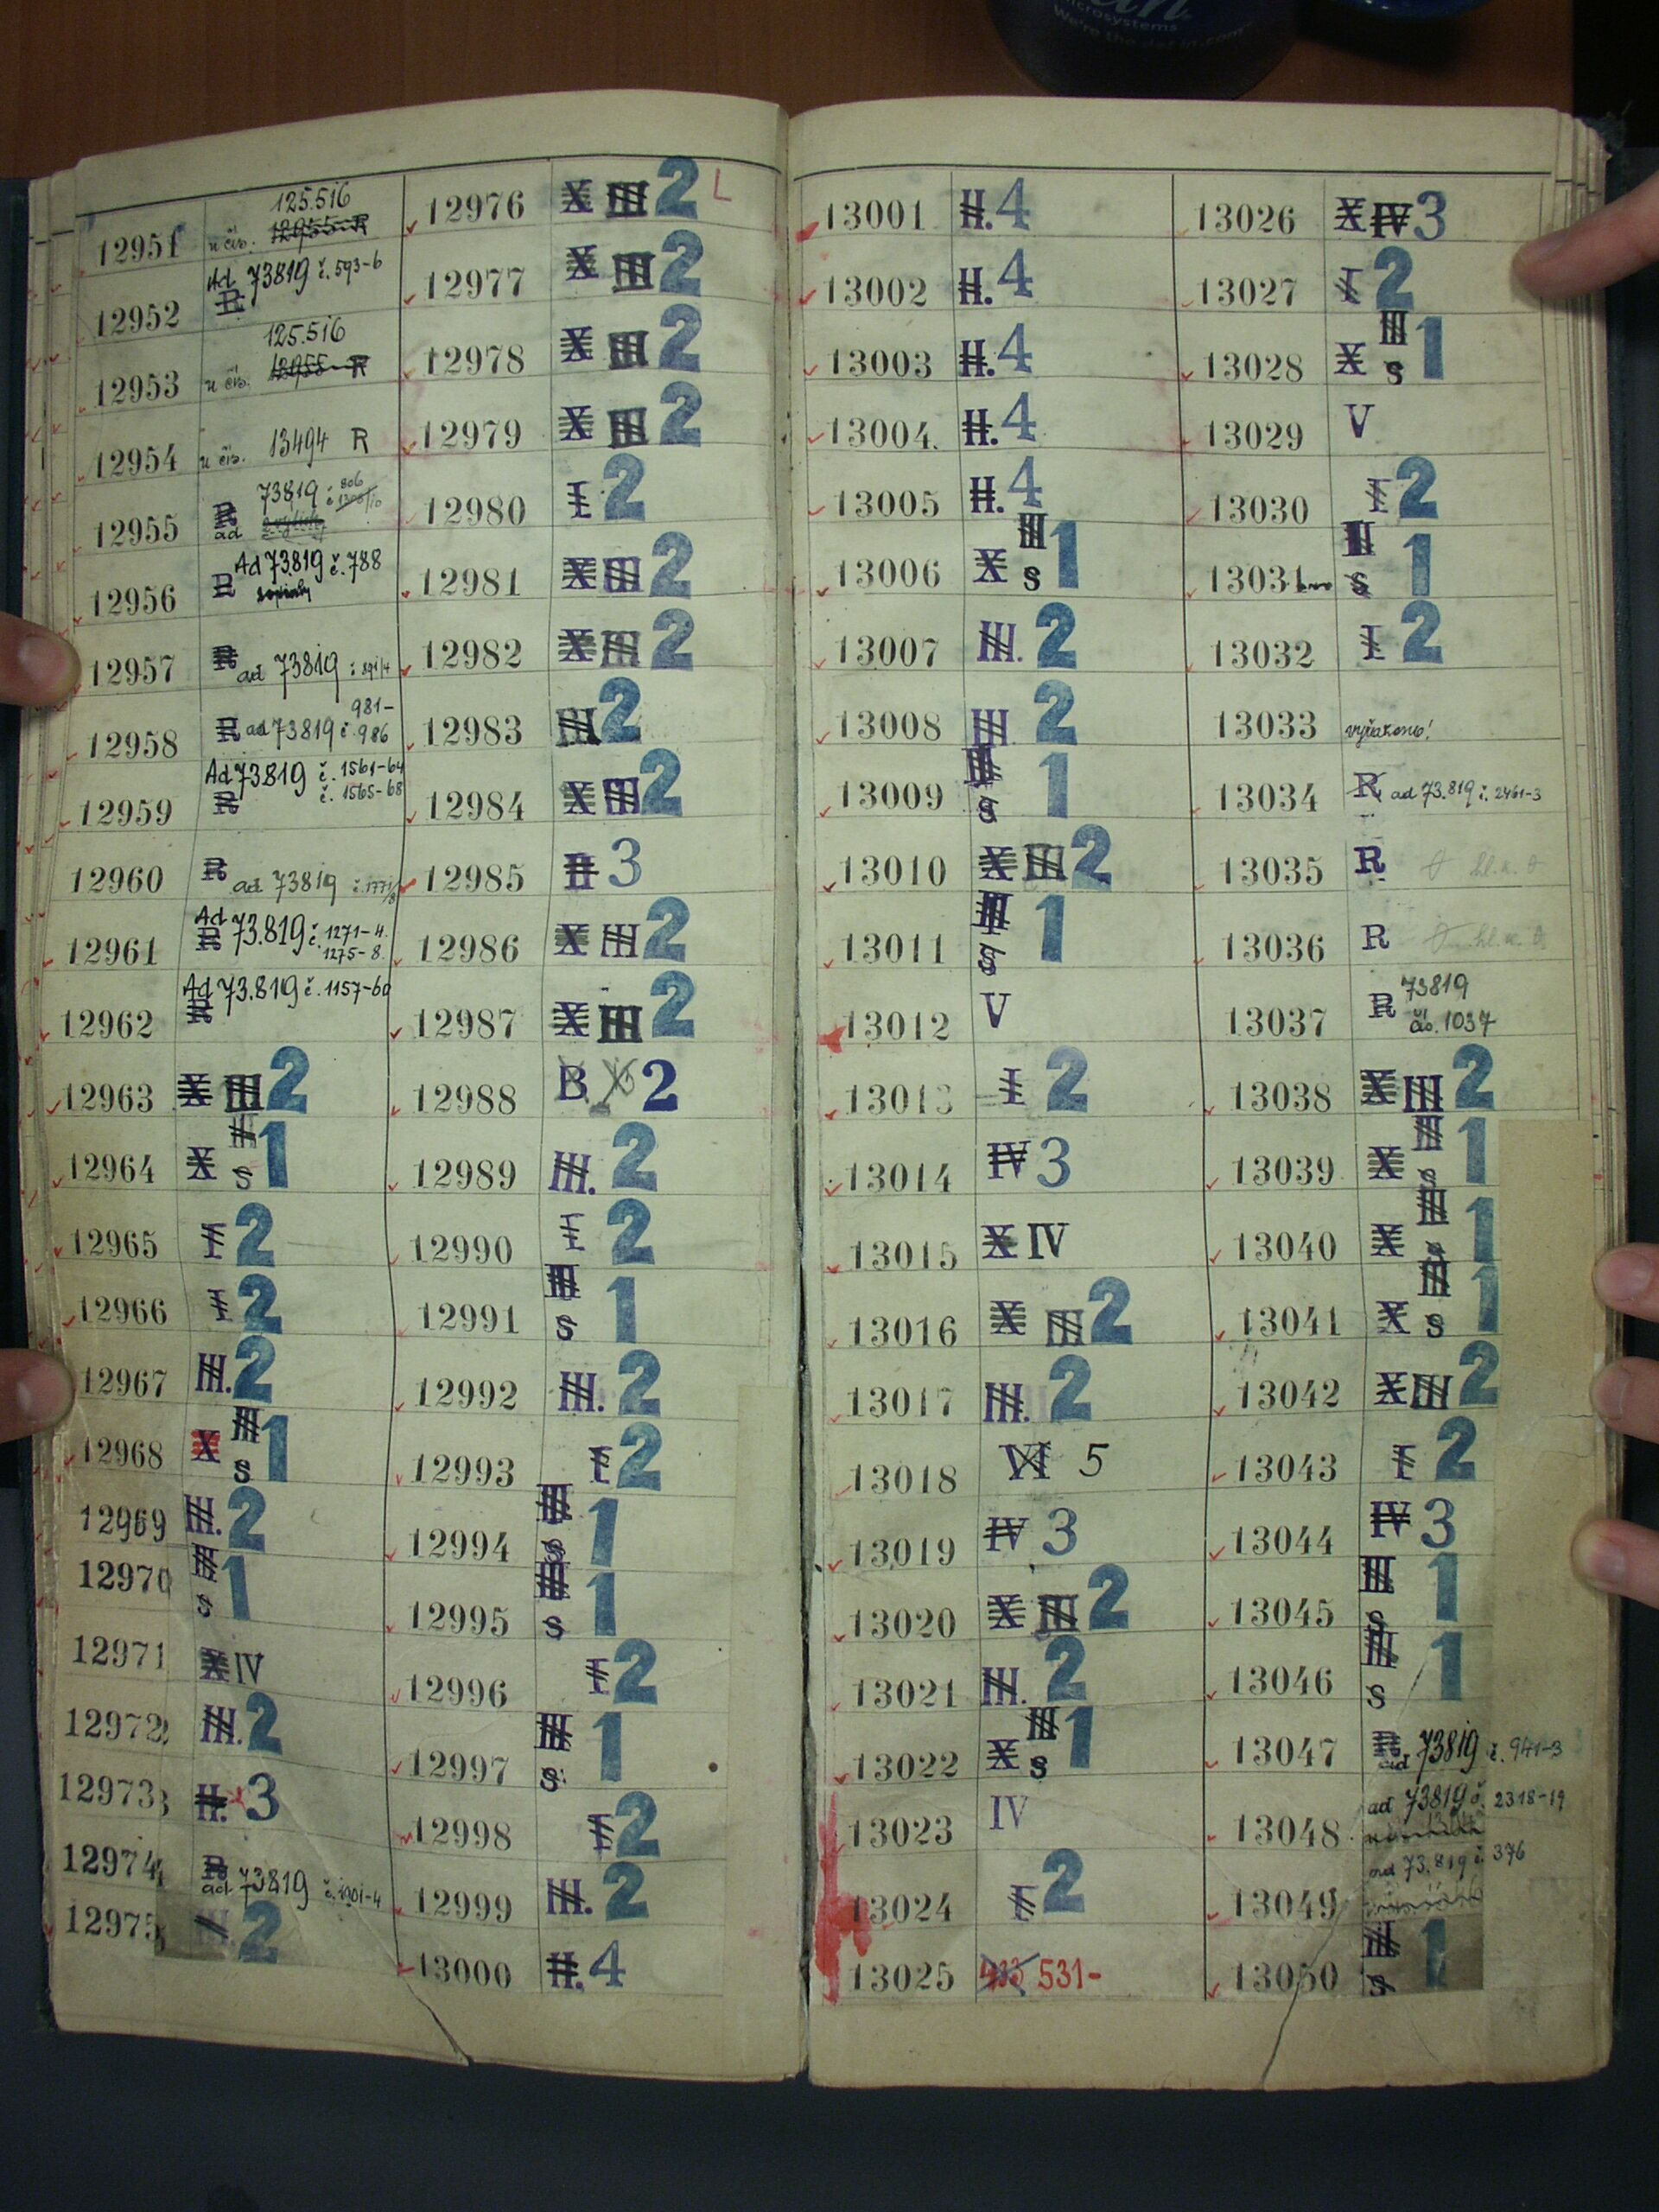 microsystems
We're the dot in .com
12951 u čís. 125.516 12955 R
12952 Ad 73819 č. 593-6 R
12953 u čís. 125.516 12955 R
12954 u čís. 13494 R
12955 R 73819 č. 806 ad
12956 R Ad 73819 č. 788
12957 R ad 73819
12958 R ad 73819 č. 981-986
12959 Ad 73819 č. 1561-64 č. 1565-68 R
12960 R ad 73819
12961 Ad R 73.819 č. 1271-4. 1275-8.
12962 Ad 73.819 č. 1157-60 R
12963 X III 2
12964 X III S 1
12965 I 2
12966 I 2
12967 III. 2
12968 X III S 1
12969 III. 2
12970 III S 1
12971 X IV
12972 III. 2
12973 H. 3
12974 R ad 73819
12975 III 2
12976 X III 2 L
12977 X III 2
12978 X III 2
12979 X III 2
12980 I 2
12981 X III 2
12982 X III 2
12983 III 2
12984 X III 2
12985 H 3
12986 X III 2
12987 X III 2
12988 B 2
12989 III. 2
12990 I 2
12991 III S 1
12992 III. 2
12993 I 2
12994 III S 1
12995 III S 1
12996 I 2
12997 III S 1
12998 I 2
12999 III. 2
13000 H. 4
13001 H. 4
13002 H. 4
13003 H. 4
13004. H. 4
13005 H. 4
13006 X III S 1
13007 III. 2
13008 III 2
13009 III S 1
13010 X III 2
13011 III S 1
13012 V
13013 I 2
13014 IV 3
13015 X IV
13016 X III 2
13017 III. 2
13018 VI 5
13019 IV 3
13020 X III 2
13021 III. 2
13022 X III S 1
13023 IV
13024 I 2
13025 531-
13026 X IV 3
13027 I 2
13028 X III S 1
13029 V
13030 I 2
13031 III S 1
13032 I 2
13033 vyřazeno!
13034 R ad 73.819 č. 2461-3
13035 R
13036 R
13037 R 73819 čís. 1037
13038 X III 2
13039 X III S 1
13040 X III S 1
13041 X III S 1
13042 X III 2
13043 I 2
13044 IV 3
13045 III S 1
13046 III S 1
13047 R ad 73819 č. 941-3
13048 ad 73819 č. 2318-19
13049 ad 73.819 č. 376
13050 III S 1